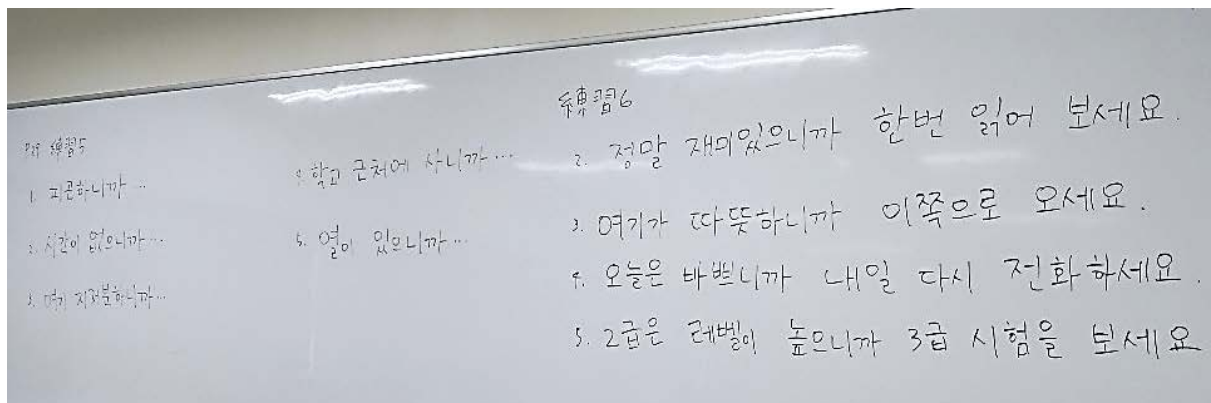 P29 練習5
1. 피곤하니까 …
2. 시간이 없으니까 …
3. 여기 지저분하니까 …
4. 학교 근처에 사니까 …
5. 열이 있으니까 …
練習6
2. 정말 재미있으니까 한번 읽어 보세요.
3. 여기가 따뜻하니까 이쪽으로 오세요.
4. 오늘은 바쁘니까 내일 다시 전화하세요.
5. 2급은 레벨이 높으니까 3급 시험을 보세요